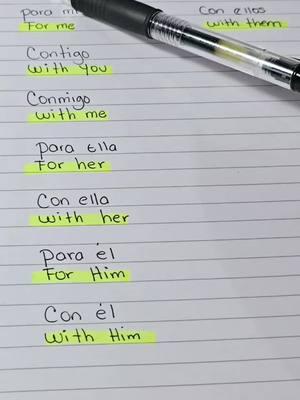 Para mí
For me
Con ellos
with them
Contigo
with you
Conmigo
with me
Para Ella
For her
Con ella
with her
Para él
For Him
Con él
with Him